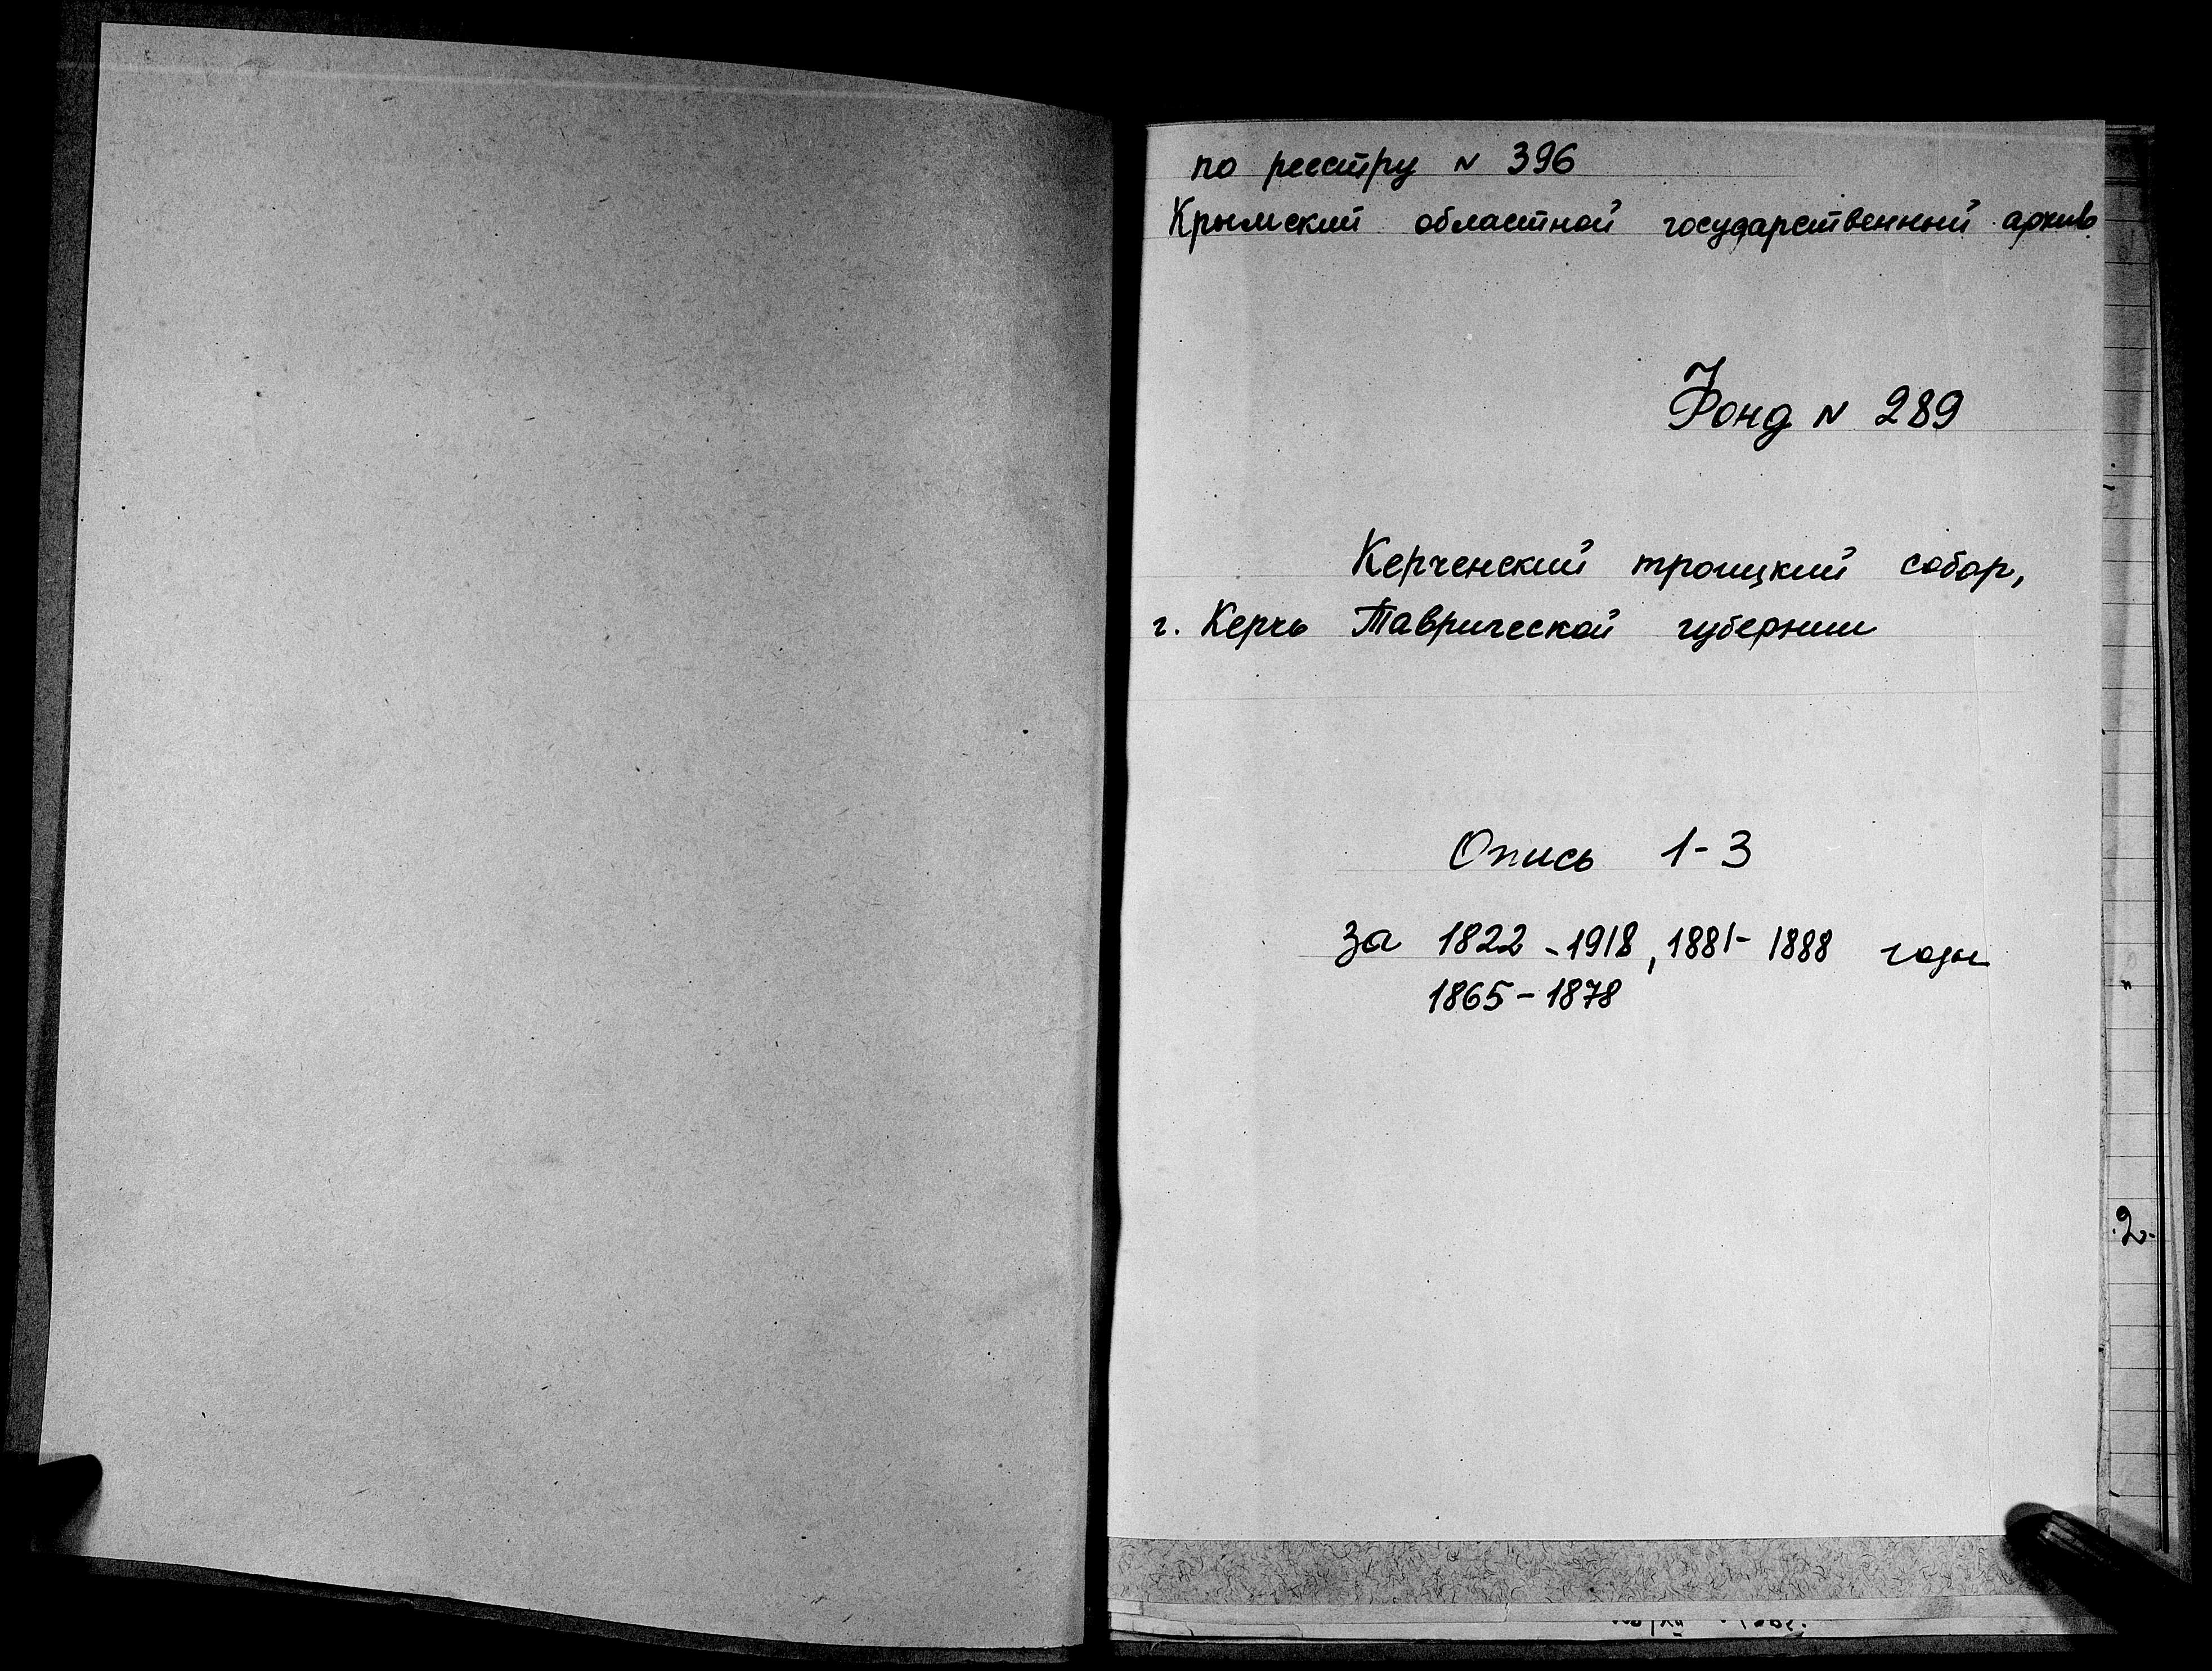 по реестру N 396
Крымский областной государственный архив
Фонд N 289
Керченский троицкий собор,
г. Керчь Таврической губернии
Опись 1-3
за 1822 - 1918, 1881 - 1888 годы
1865 - 1878
2.